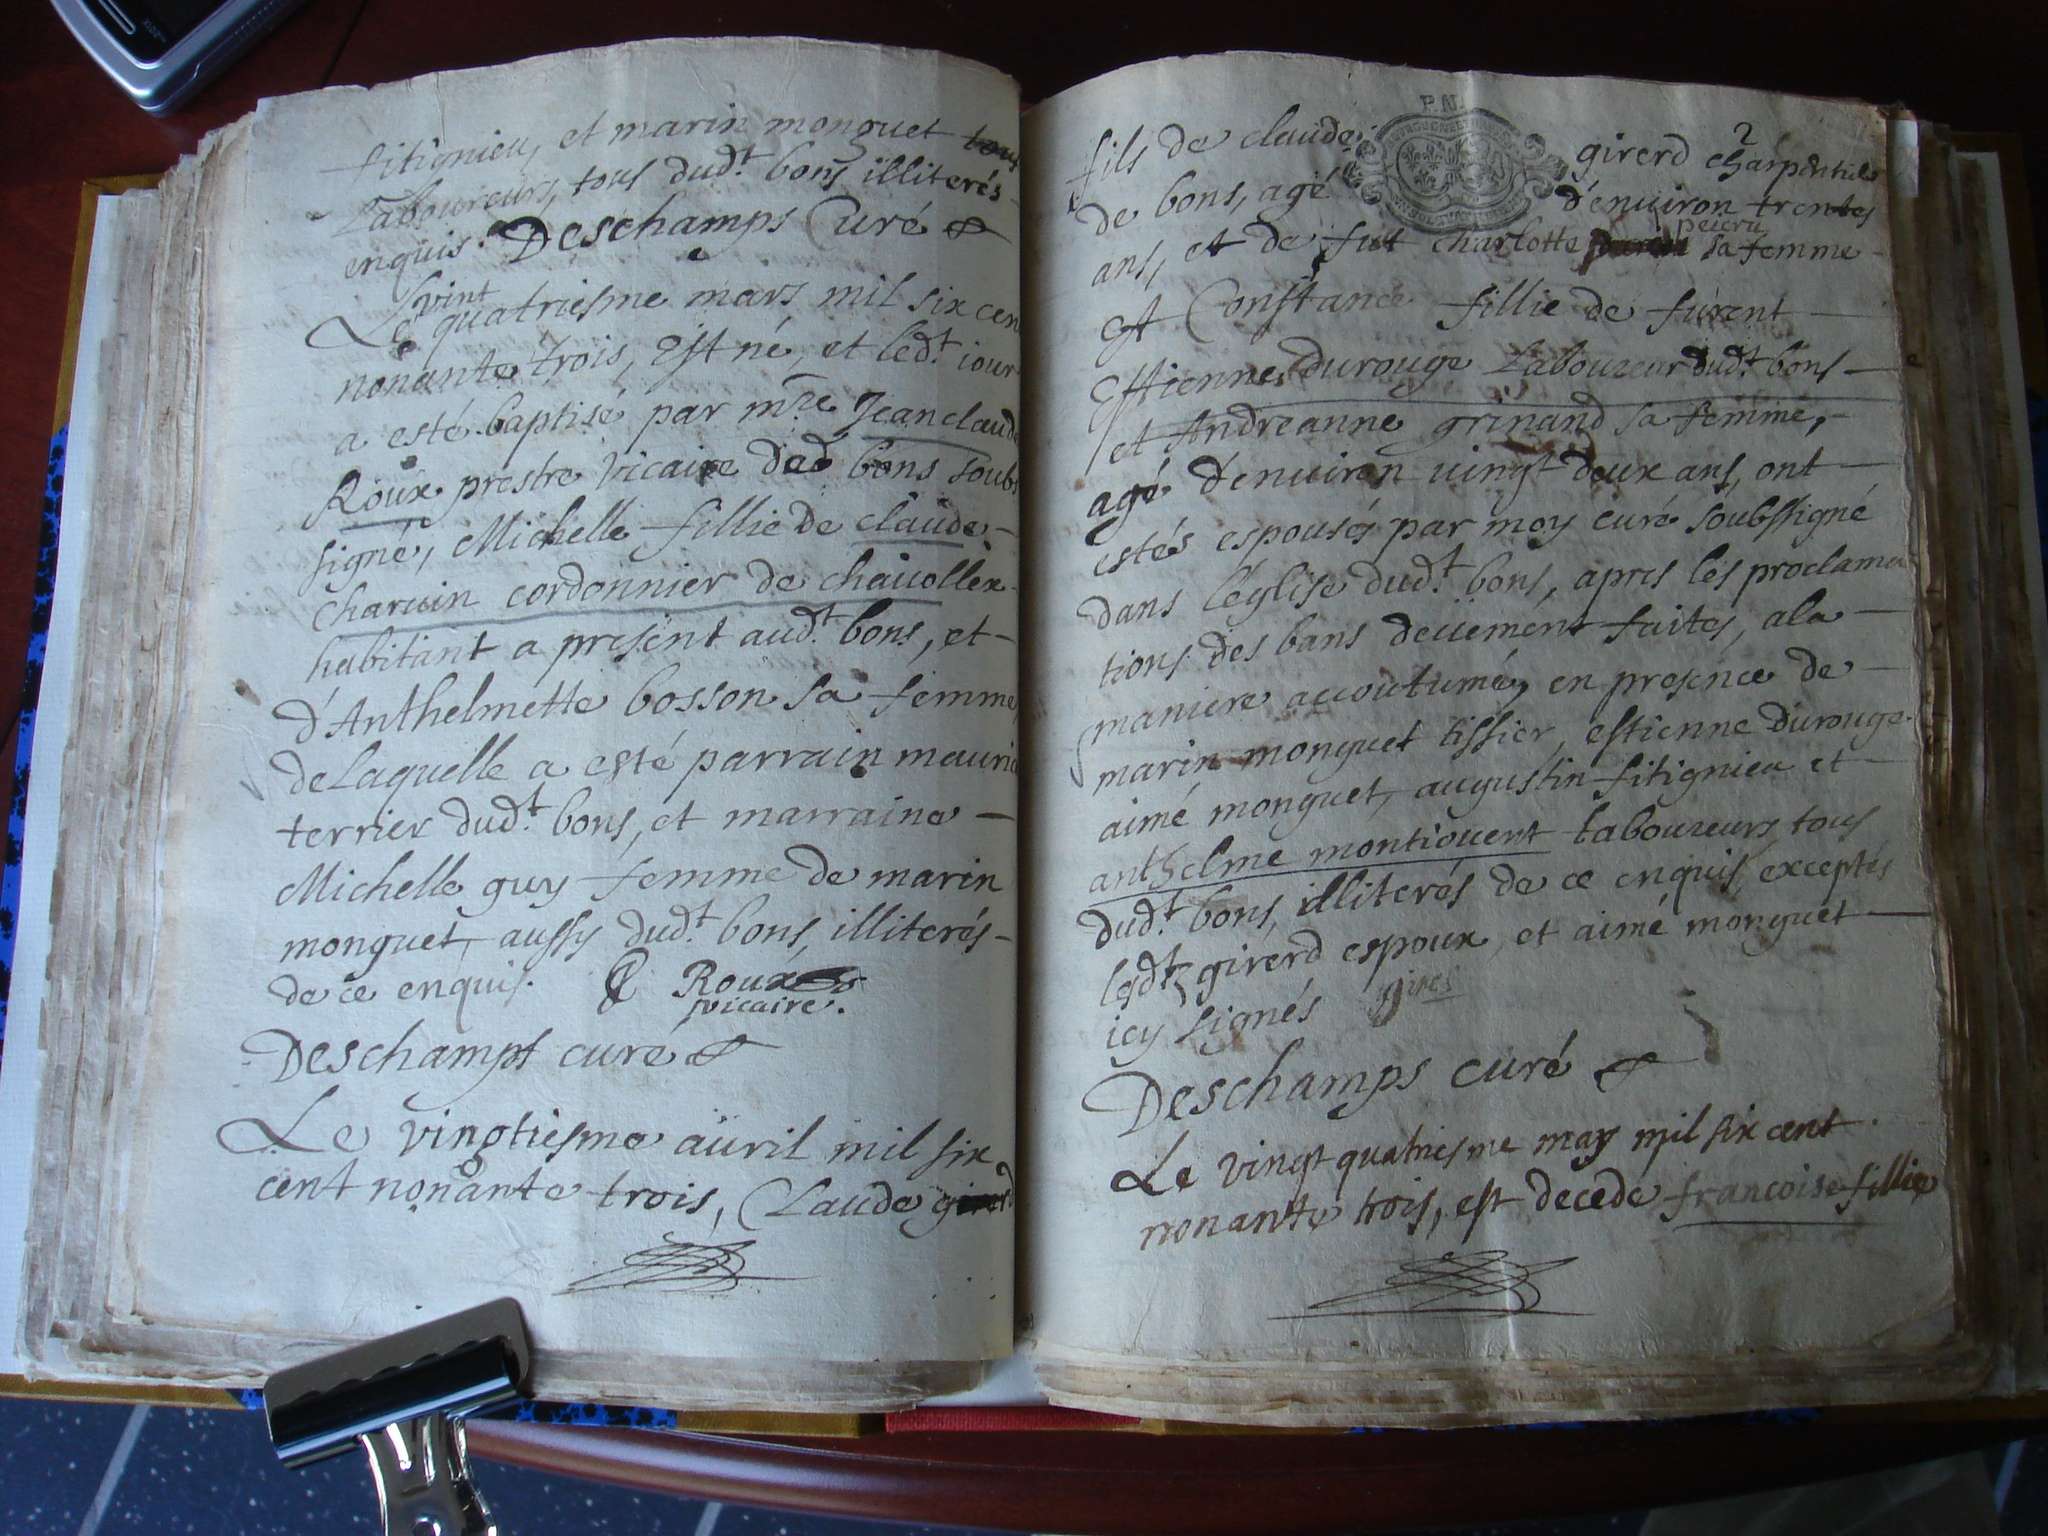 fitignieu, et marin monguet tous
Laboureurs, tous dudt. bons illiterés
enquis. Deschamps Curé
vint
Le quatriesme mars mil six cen
nonante trois, est né, et ledt. iour
a esté baptisé par mre Jean claude
Roux prestre vicaire ded bons soubs
signé, Michelle fillie de claude
charuin cordonnier de chauollex
habitant a present audt. bons, et
d'Anthelmette bosson sa femme,
de Laquelle a esté parrain mauric
terrier dudt. bons, et marraine
Michelle guy femme de marin
monguet, aussy dudt. bons, illiterés
de ce enquis. Roux
vicaire.
Deschamps curé
Le vingtiesme auril mil six
cent nonante trois, Claude girerd
P.N.
2
fils de claude girerd charpentier
de bons, agé d'enuiron trentes
ans, et de fut charlotte peicru sa femme
Et Constance fillie de furent
Estienne durouge Laboureur dudt. bons
et Andreanne grinand sa femme,
agé d'enuiron uingt deux ans, ont
estés espousés par moy curé soubssigné
dans l'église dudt. bons, apres les proclama
tions des bans deüement faites, a la
maniere accoutumé, en presence de
marin monguet tissier, estienne durouge
aimé monguet, augustin fitignieu et
anthelme montiouent laboureurs tous
dudt. bons, illiterés de ce enquis, exceptés
lesdt. girerd espoux, et aimé monguet
icy signés
Deschamps curé
Le vingt quatriesme may mil six cent
nonante trois, est decede francoise fillie